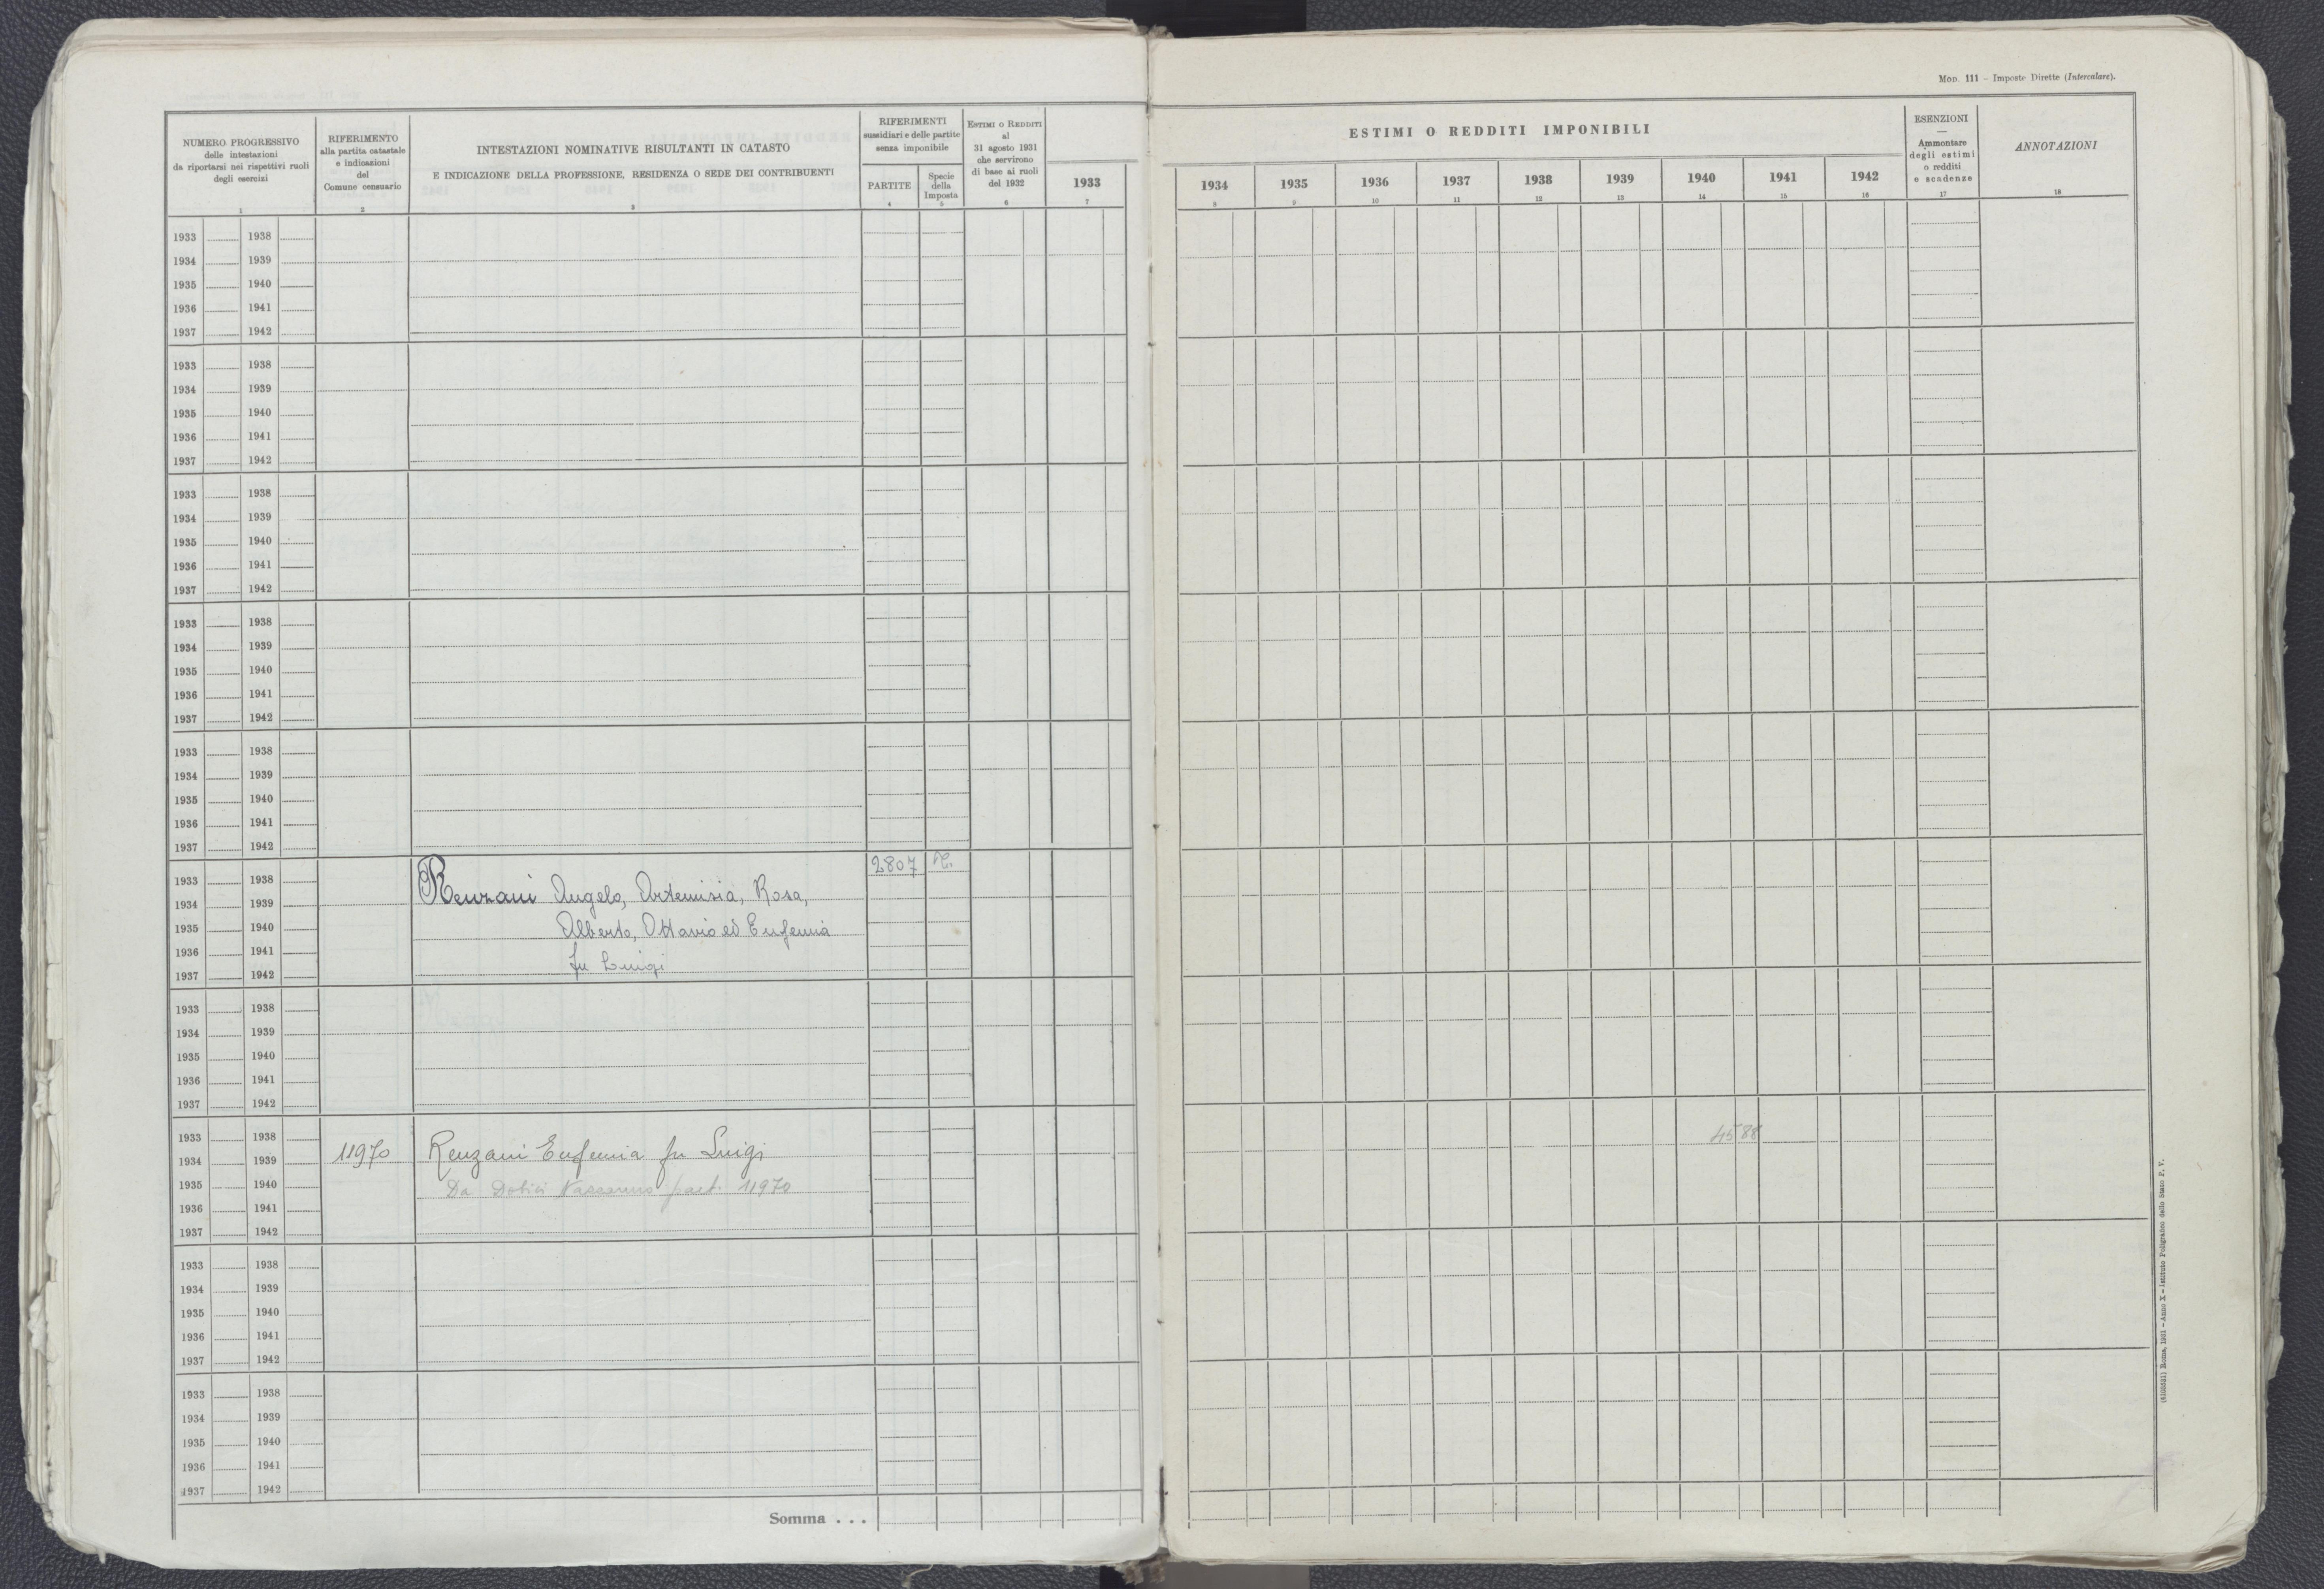 Mod. 111 – Imposte Dirette (Intercalare).
NUMERO PROGRESSIVO
delle intestazioni
da riportarsi nei rispettivi ruoli
degli esercizi
1
RIFERIMENTO
alla partita catastale
e indicazioni
del
Comune censuario
2
INTESTAZIONI NOMINATIVE RISULTANTI IN CATASTO
E INDICAZIONE DELLA PROFESSIONE, RESIDENZA O SEDE DEI CONTRIBUENTI
3
RIFERIMENTI
sussidiari e delle partite
senza imponibile
PARTITE
4
Specie
della
Imposta
5
ESTIMI O REDDITI
al
31 agosto 1931
che servirono
di base ai ruoli
del 1932
6
1933
7
ESTIMI O REDDITI IMPONIBILI
1934 1935 1936 1937 1938 1939 1940 1941 1942
8 9 10 11 12 13 14 15 16
ESENZIONI
—
Ammontare
degli estimi
o redditi
e scadenze
17
ANNOTAZIONI
18
1933 1938
1934 1939
1935 1940
1936 1941
1937 1942
1933 1938
1934 1939
1935 1940
1936 1941
1937 1942
1933 1938
1934 1939
1935 1940
1936 1941
1937 1942
1933 1938
1934 1939
1935 1940
1936 1941
1937 1942
1933 1938
1934 1939
1935 1940
1936 1941
1937 1942
2807
1933 1938
1934 1939 Renzani Angelo, Artemisia, Rosa,
1935 1940 Alberto, Ottavio ed Eufemia
1936 1941
1937 1942 fu Luigi
1933 1938
1934 1939
1935 1940
1936 1941
1937 1942
1933 1938 4588
1934 1939 11970 Renzani Eufemia fu Luigi
1935 1940 Da part. 11970
1936 1941
1937 1942
1933 1938
1934 1939
1935 1940
1936 1941
1937 1942
1933 1938
1934 1939
1935 1940
1936 1941
1937 1942
Somma . . .
Roma, 1931 – Anno X – Istituto Poligrafico dello Stato P. V.